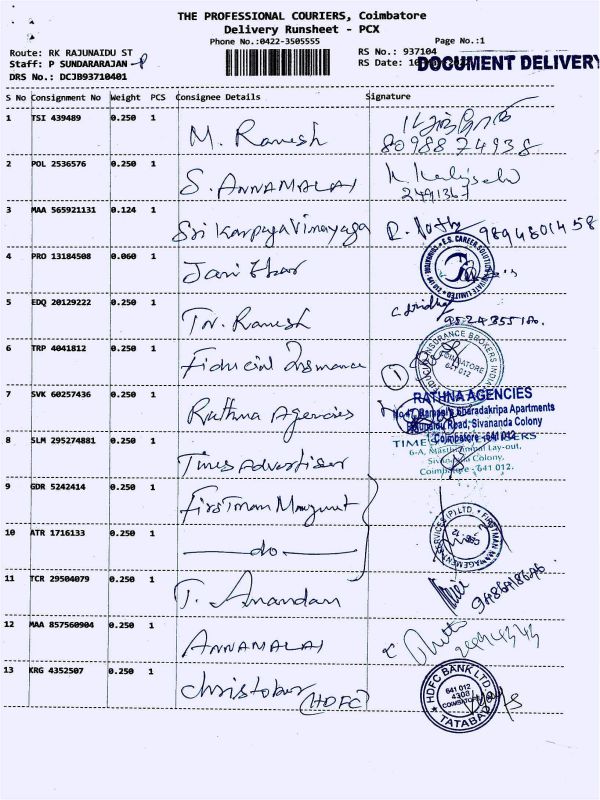 THE PROFESSIONAL COURIERS, Coimbatore
Delivery Runsheet - PCX
Phone No.:0422-3505555
Page No.:1
Route: RK RAJUNAIDU ST
Staff: P SUNDARARAJAN
DRS No.: DCJB93710401
RS No.: 937104
RS Date:
DOCUMENT DELIVERY
S No Consignment No Weight PCS Consignee Details Signature
1 TSI 439489 0.250 1 M. Ramesh
8098874938
2 POL 2536576 0.250 1 S. ANNAMALAI
3 MAA 565921131 0.124 1 Sri Karpaga Vinayaga
9894801458
4 PRO 13184508 0.060 1
E.S. CAREER SOLUTIONS PRIVATE LIMITED
5 EDQ 20129222 0.250 1 TN. Ramesh
C. Sridhar
6 TRP 4041812 0.250 1 Fiducial Insurance
1
INSURANCE BROKERS INDIA
COIMBATORE
641 012
7 SVK 60257436 0.250 1 Rathna Agencies
RATHNA AGENCIES
Bharadakripa Apartments
Road, Sivananda Colony
Coimbatore - 641 012
8 SLM 295274881 0.250 1 Times Advertiser
TIME
6-A, Lay-out,
Colony,
Coimbatore - 641 012.
9 GDR 5242414 0.250 1 Firstman Mangmet
FIRSTMAN MANAGEMENT SERVICES (P) LTD.
CBE-12
10 ATR 1716133 0.250 1 do
11 TCR 29504079 0.250 1 T. Anandan
12 MAA 857560904 0.250 1 ANNAMALAI
13 KRG 4352507 0.250 1 Christober
(HDFC)
HDFC BANK LTD
641 012
4308
COIMBATORE
TATABAD